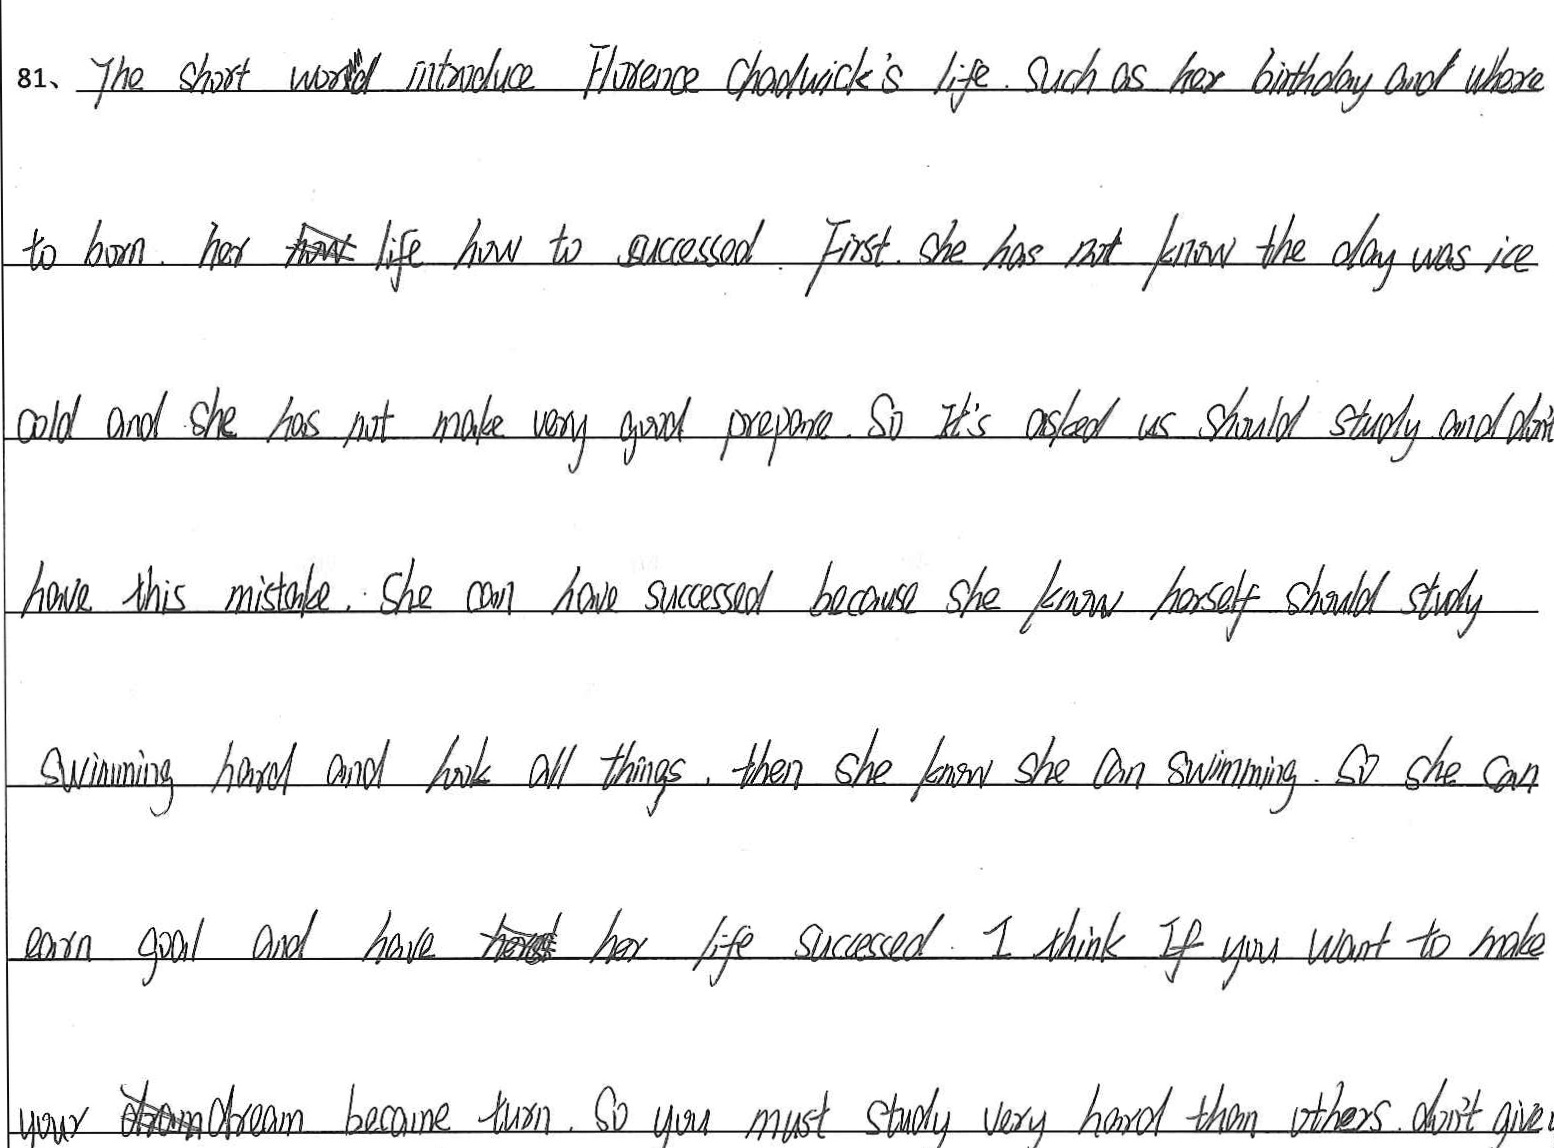 81、The short world introduce Florence Chadwick's life. Such as her birthday and where
to born. her life how to successed. First. she has not know the day was ice
cold and she has not make very good prepare. So It's asked us should study and don't
have this mistake. She can have successed because she know herself should study
swimming hard and look all things. then she know she can swimming. So she can
earn goal and have her life successed. I think If you want to make
your dream become turn. So you must study very hard than others. don't give